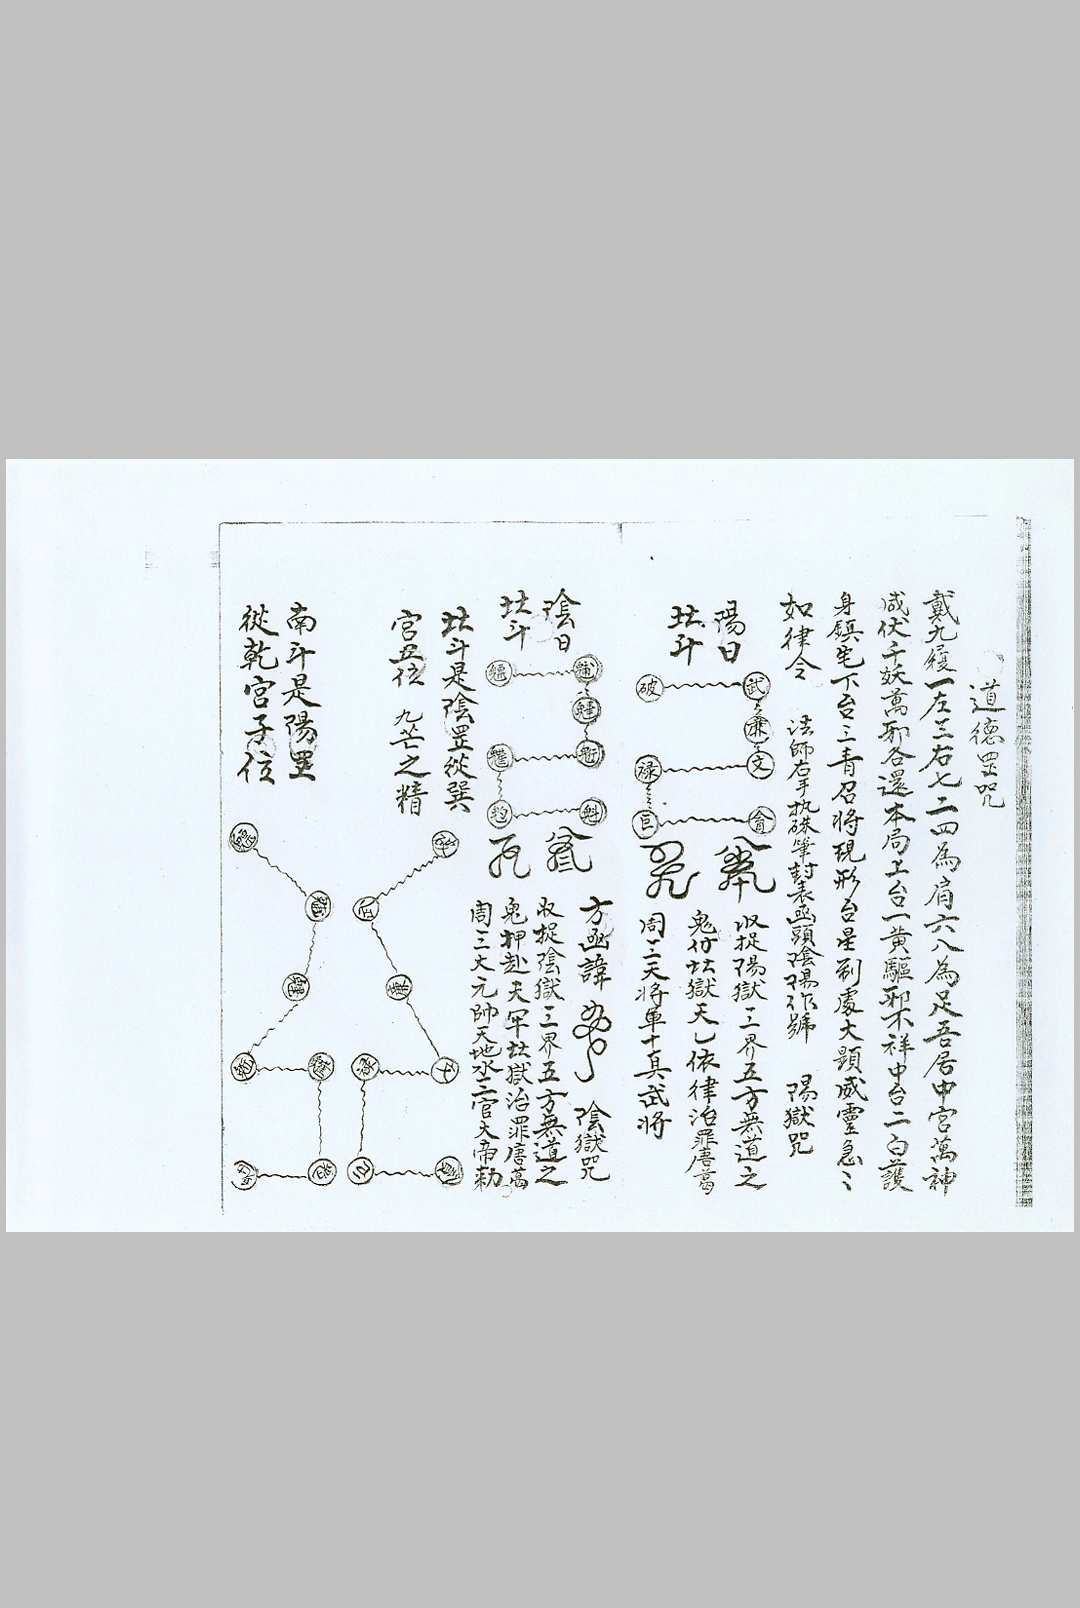 道德罡咒
戴九履一左三右七二四為肩六八為足吾居中宮萬神
咸伏千妖萬邪各還本局上台一黃驅邪不祥中台二白護
身鎮宅下台三青召將現形台星到處大顯威靈急〻
如律令　法師右手執硃筆封表函頭陰陽作號　陽獄咒
陽日
北斗
武 破
廉
文 祿
貪 巨
收捉陽獄三界五方無道之
鬼付北獄天乙依律治罪唐葛
周三天將軍十真武將
方函諱　陰獄咒
陰日
北斗
魁
收捉陰獄三界五方無道之
鬼押赴天牢北獄治罪唐葛
周三大元帥天地水三官大帝勅
北斗是陰罡從巽
宮五位　九芒之精
南斗是陽罡
從乾宮子位